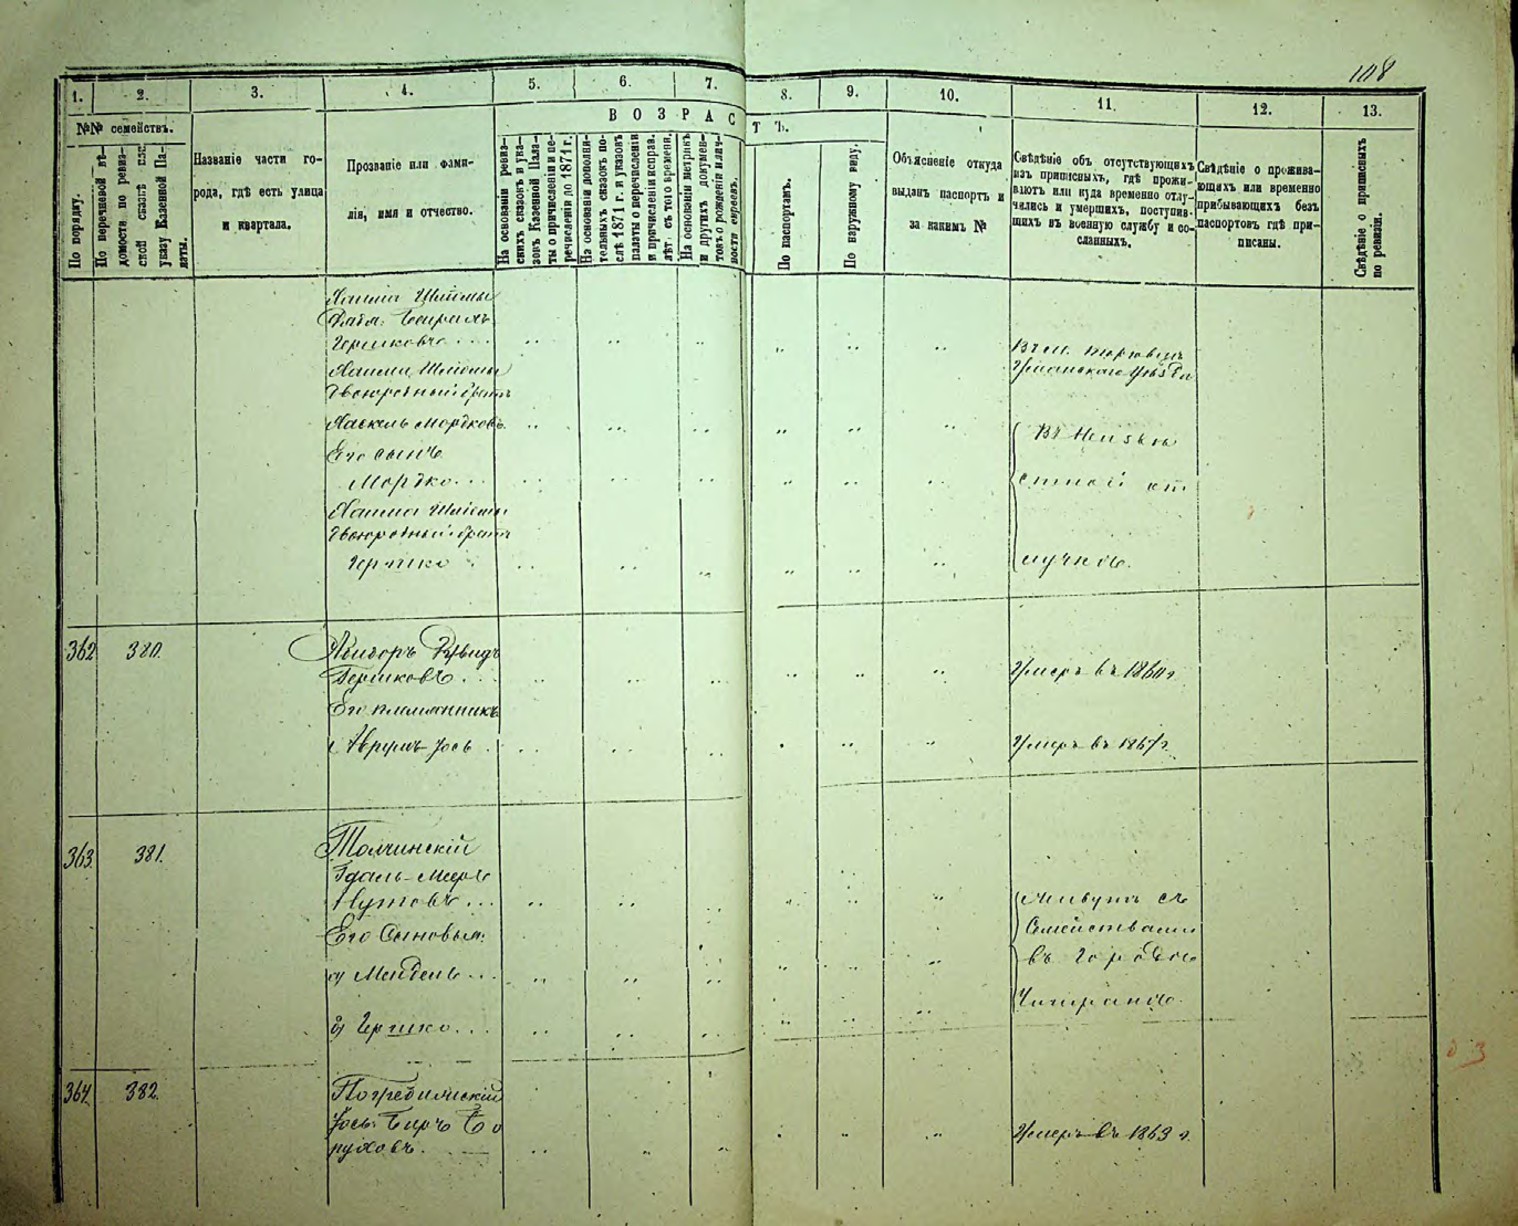 108
1.
2.
3.
4.
5.
6.
7.
8.
9.
10.
11.
12.
13.
№№ семействъ.
По порядку.
По перечневой вѣ-
домости по ревиз-
ской сказкѣ или
указу Казенной Па-
латы.
Названіе части го-
рода, гдѣ есть улица
и квартала.
Прозваніе или фами-
лія, имя и отчество.
ВОЗРАС
Тъ.
На основаніи ревиз-
скихъ сказокъ и ука-
зовъ Казенной Пала-
ты о причисленіи и пе-
речисленіи до 1871 г.
На основаніи дополни-
тельныхъ сказокъ по-
слѣ 1871 г. и указовъ
палаты о перечисленіи
и причисленіи исправ.
лѣт. съ того времени.
На основаніи метрикъ
и другихъ докумен-
товъ о рожденіи и лич-
ности евреевъ.
По паспортамъ.
По наружному виду.
Объясненіе откуда
выданъ паспортъ и
за какимъ №
Свѣдѣніе объ отсутствующихъ
изъ приписныхъ, гдѣ прожи-
ваютъ или куда временно отлу-
чались и умершихъ, поступив-
шихъ въ военную службу и со-
сланныхъ.
Свѣдѣніе о прожива-
ющихъ или временно
прибывающихъ безъ
паспортовъ гдѣ при-
писаны.
Свѣдѣніе о приписныхъ
по ревизіи.
Шлиомы
Гершковъ
Шлиомы
двоюродный братъ
Хаскель Мордковъ
Его сынъ
Мордко
Шлиомы
двоюродный братъ
Гершко
Уманского Уѣзда
въ
случное.
362 380.
Давидъ
Гершковъ
Умеръ въ 1860 г
Его племянникъ
Аврумъ Іось
Умеръ въ 1867 г.
363. 381.
Толчинскій
Мееръ
Нутовъ
Его Сыновья:
а) Мендель
б) Гершко
живутъ съ
Семействами
въ городѣ
Чигиринѣ.
364. 382.
Погребинскій
Іось-Беръ Бо
руховъ.
Умеръ въ 1863 г.